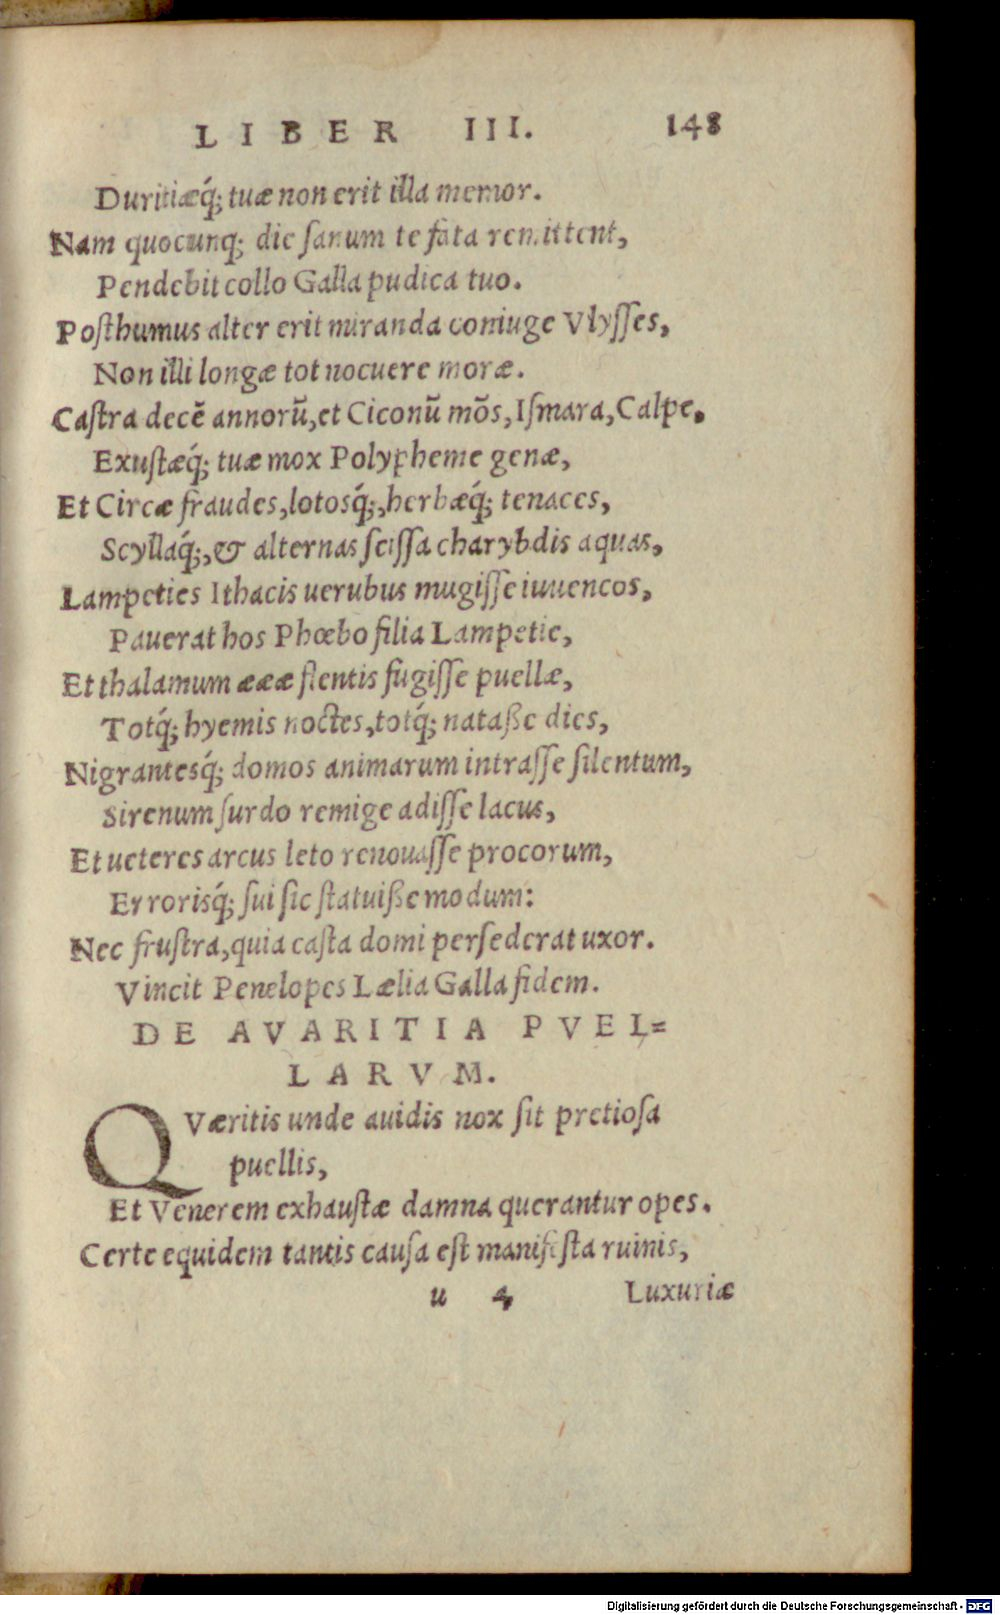 LIBER III. 148
Duritiæq́; tuæ non erit illa memor.
Nam quocunq; die sanum te fata remittent,
Pendebit collo Galla pudica tuo.
Posthumus alter erit miranda coniuge Vlysses,
Non illi longæ tot nocuere moræ.
Castra decē annorū, et Ciconū mōs, Ismara, Calpe.
Exustæq́; tuæ mox Polypheme genæ,
Et Circæ fraudes, lotosq́;, herbæq́; tenaces,
Scyllaq́;, & alternas scissa charybdis aquas,
Lampeties Ithacis uerubus mugisse iuuencos,
Pauerat hos Phœbo filia Lampetie,
Et thalamum ææææ flentis fugisse puellæ,
Totq́; hyemis noctes, totq́; nataße dies,
Nigrantesq́; domos animarum intrasse silentum,
Sirenum surdo remige adisse lacus,
Et ueteres arcus leto renouasse procorum,
Errorisq́; sui sic statuiße modum:
Nec frustra, quia casta domi persederat uxor.
Vincit Penelopes Lælia Galla fidem.
DE AVARITIA PVEL=
LARVM.
QVæritis unde auidis nox sit pretiosa
puellis,
Et Venerem exhaustæ damna querantur opes.
Certe equidem tantis causa est manifesta ruinis,
u 4 Luxuriæ
Digitalisierung gefördert durch die Deutsche Forschungsgemeinschaft - DFG